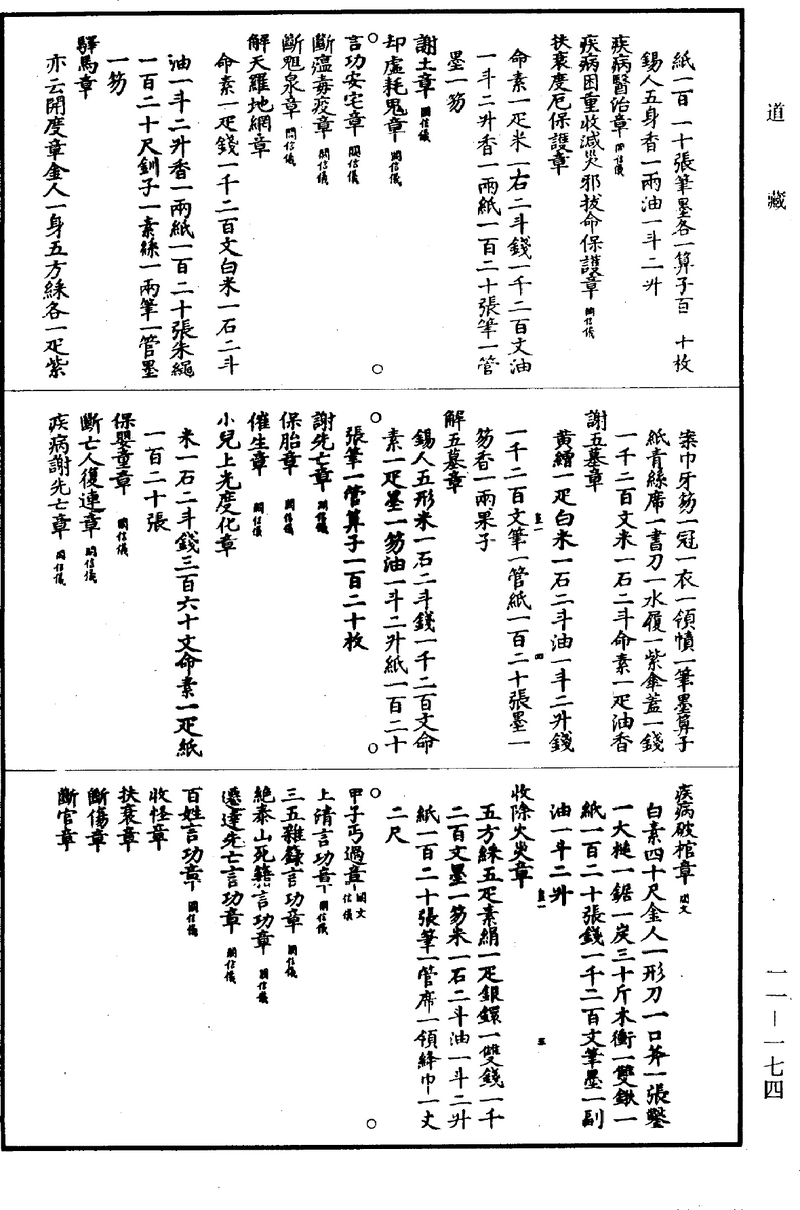 道藏
紙一百一十張筆墨各一算子百 十枚
錫人五身香一兩油一斗二升
疾病醫治章 闕信儀
疾病困重收減災邪拔命保護章 闕信儀
扶衰度厄保護章
命素一疋米一石二斗錢一千二百文油
一斗二升香一兩紙一百二十張筆一管
墨一笏
謝土章 闕信儀
却虛耗鬼章 闕信儀
言功安宅章 闕信儀
斷瘟毒疫章 闕信儀
斷 泉章 闕信儀
解天羅地網章
命素一疋錢一千二百文白米一石二斗
油一斗二升香一兩紙一百二十張朱繩
一百二十尺釧子一素絲一兩筆一管墨
一笏
驛馬章
亦云開度章金人一身五方綵各一疋紫
案巾牙笏一冠一衣一領幘一筆墨算子
紙青絲席一書刀一水履一紫傘蓋一錢
一千二百文米一石二斗命素一疋油香
謝五墓章
黃繒一疋白米一石二斗油一斗二升錢
一千二百文筆一管紙一百二十張墨一
笏香一兩果子
解五墓章
錫人五形米一石二斗錢一千二百文命
素一疋墨一笏油一斗二升紙一百二十
張筆一管算子一百二十枚
謝先亡章 闕信儀
保胎章 闕信儀
催生章 闕信儀
小兒上光度化章
米一石二斗錢三百六十文命素一疋紙
一百二十張
保嬰童章 闕信儀
斷亡人復連章 闕信儀
疾病謝先亡章 闕信儀
疾病破棺章 闕文
白素四十尺金人一形刀一口斧一張鑿
一大槌一鋸一炭三十斤木衡一雙鍬一
紙一百二十張錢一千二百文筆墨一副
油一斗二升
收除火災章
五方綵五疋素絹一疋銀鐶一雙錢一千
二百文墨一笏米一石二斗油一斗二升
紙一百二十張筆一管席一領絳巾一丈
二尺
甲子丐過章 闕文信儀
上請言功章 闕信儀
三五雜籙言功章 闕信儀
絕泰山死籍言功章 闕信儀
遷達先亡言功章 闕信儀
百姓言功章 闕信儀
收怪章
扶衰章
斷傷章
斷官章
一一—一七四